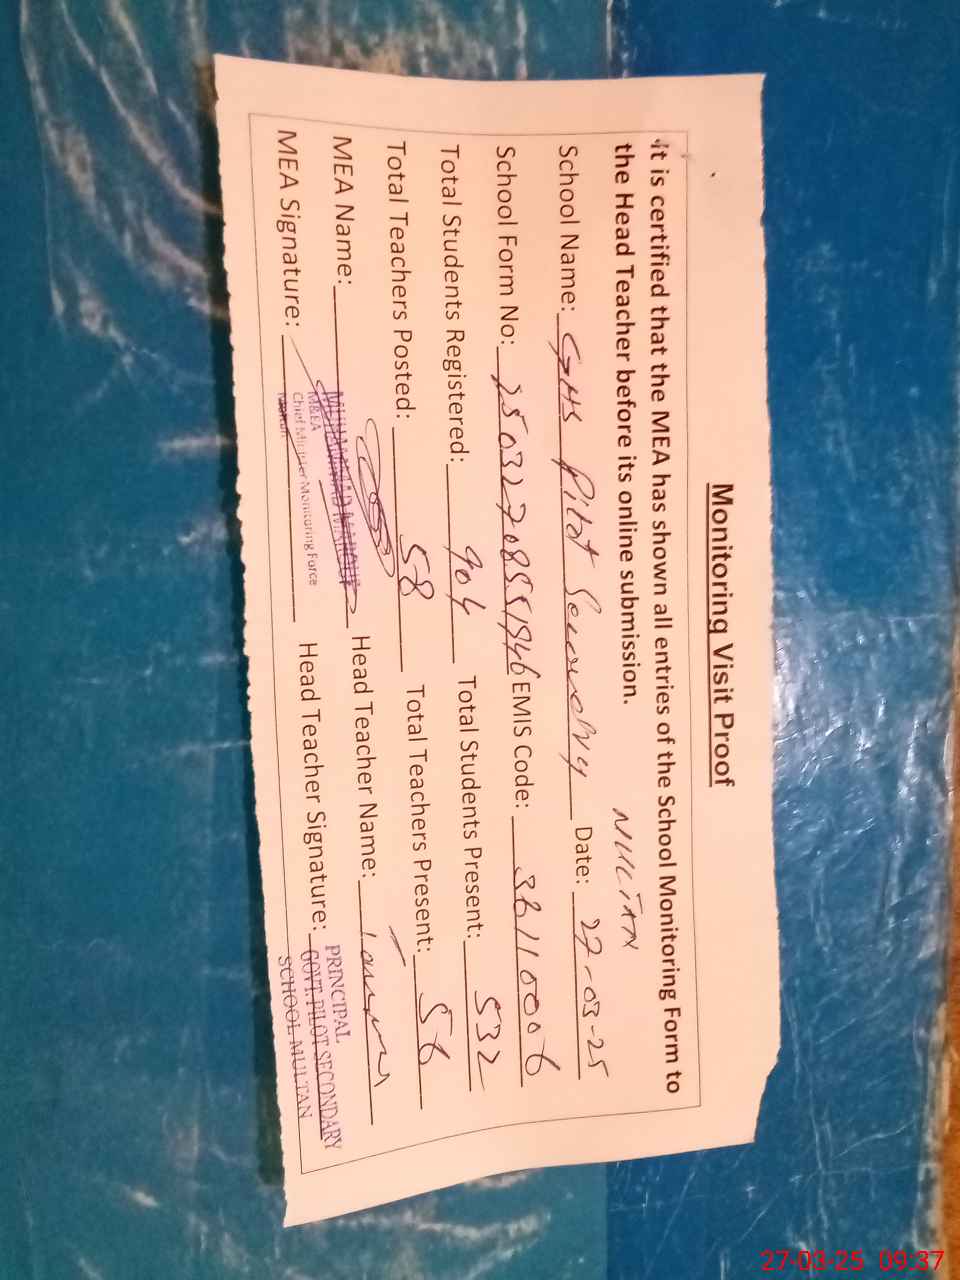 Monitoring Visit Proof
It is certified that the MEA has shown all entries of the School Monitoring Form to
the Head Teacher before its online submission.
MULTAN
School Name: GHS Pilot Secondry Date: 27-03-25
School Form No: EMIS Code: 36110006
Total Students Registered: 904 Total Students Present: 532
Total Teachers Posted: 58 Total Teachers Present: 56
MEA Name: MUHAMMAD Head Teacher Name:
M&EA
Chief Minister Monitoring Force
MEA Signature: Head Teacher Signature:
PRINCIPAL
GOVT. PILOT SECONDARY
SCHOOL MULTAN
27-03-25 09:37